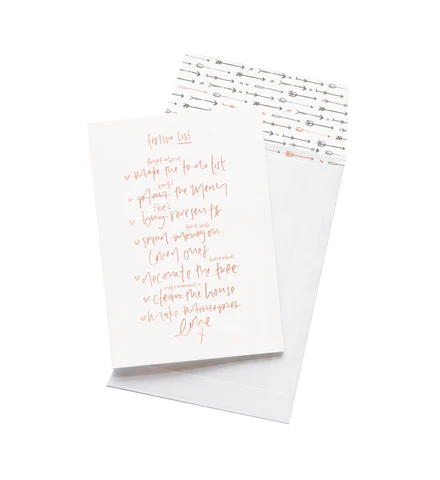 Festive List
forget about
make the to-do list
eat
plan the menu
be
buy presents
spend money on
loved ones
decorate the tree
clean the house
make mince pies
love
x